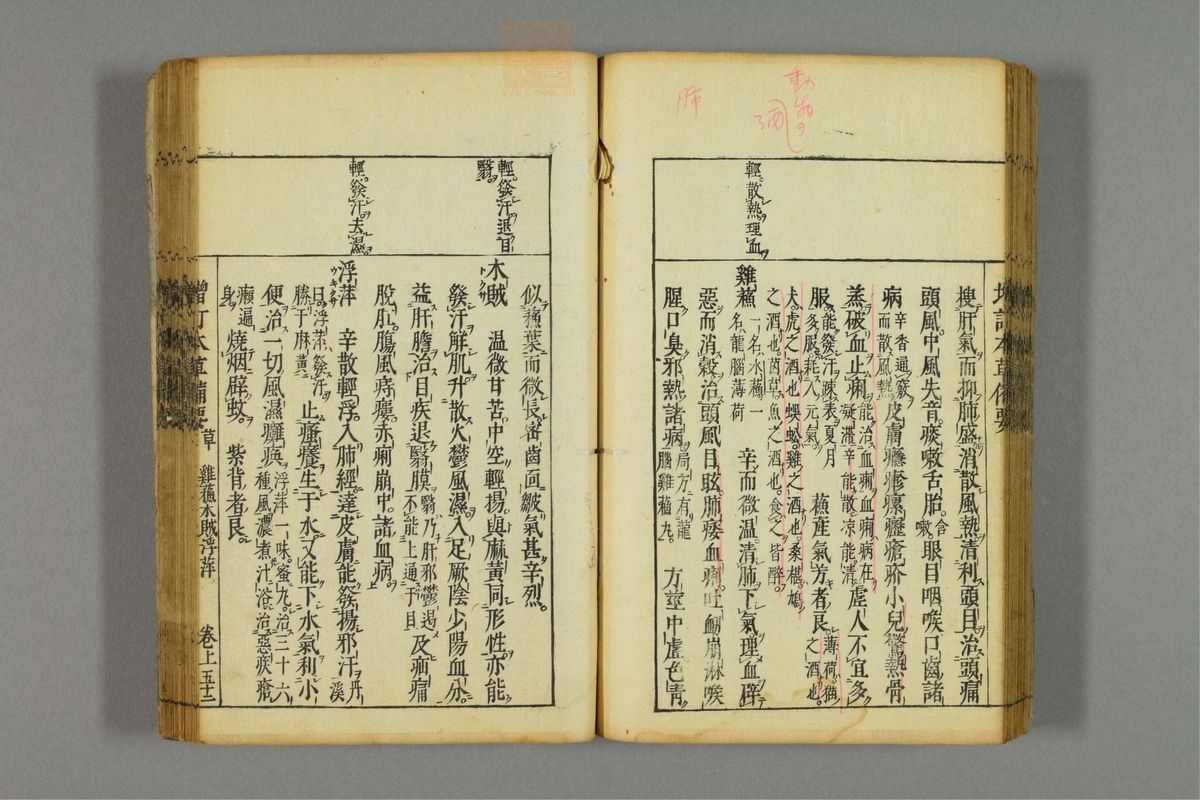 動物の
酒
肺
輕散熱理血
搜肝氣而抑肺盛消散風熱清利頭目治頭痛
頭風中風失音痰嗽舌胎含嗽眼目咽喉口齒諸
病辛香通竅而散風熱皮膚癮疹瘰癧瘡疥小兒驚熱骨
蒸破血止痢能治血痢血痢病在凝滯辛能散凉能清虛人不宜多
服能發汗疎表夏月多服耗人元氣蘓產氣芳者良薄荷猫之酒也
犬虎之酒也蜈蚣雞之酒也桑椹鳩
之酒也茵草魚之酒也食之皆醉
雞蘓一名水蘓一名龍腦薄荷辛而微溫清肺下氣理血辟
惡而消穀治頭風目眩肺痿血痢吐衂崩淋喉
腥口臭邪熱諸病局方有龍腦雞蘓丸方莖中虛色青
輕發汗退目
翳
輕發汗去濕
似蘓葉而微長密齒面皺氣甚辛烈
木賊溫微甘苦中空輕揚與麻黃同形性亦能
發汗解肌升散火鬱風濕入足厥陰少陽血分
益肝膽治目疾退翳膜翳乃肝邪鬱遏不能上通于目及疝痛
脫肛腸風痔瘻赤痢崩中諸血病
浮萍辛散輕浮入肺經達皮膚能發揚邪汗丹溪
曰浮萍發汗勝于麻黃止瘙癢生于水又能下水氣利小
便治一切風濕癱瘓浮萍一味蜜丸治三十六種風濃煮汁浴治惡疾瘡
癩遍身燒烟辟蚊紫背者良
增訂本草備要 草 雞蘓木賊浮萍 卷上五十二